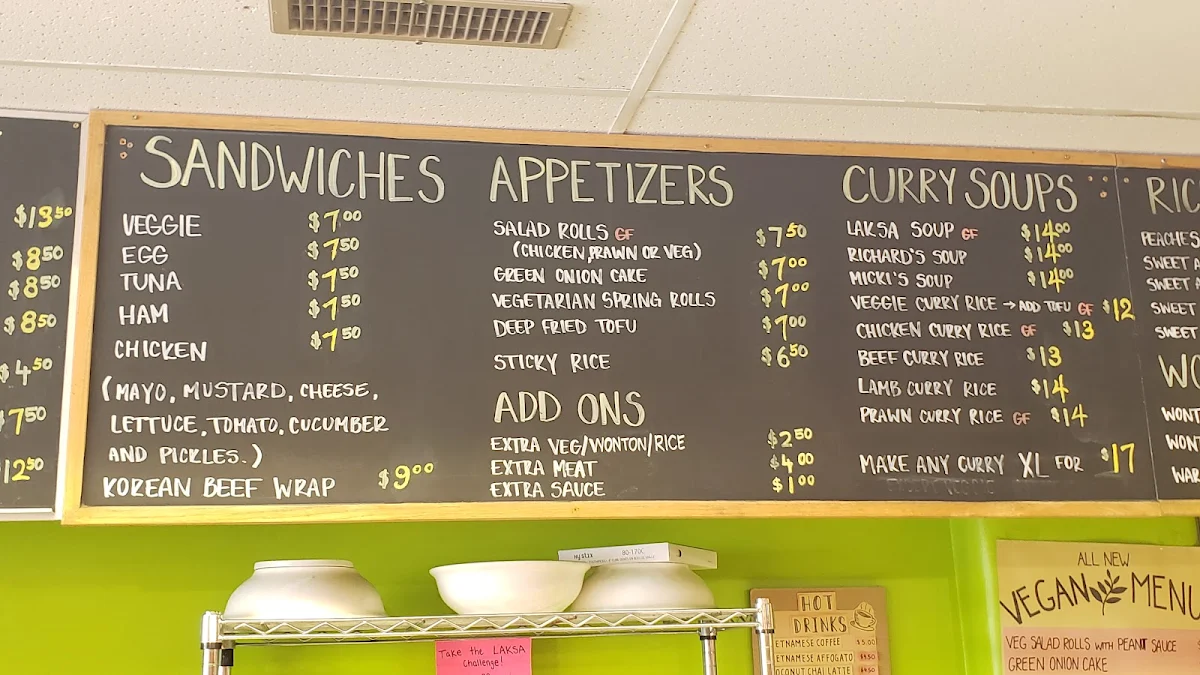 $13.50
$8.50
$8.50
$8.50
$4.50
$7.50
12.50
SANDWICHES
VEGGIE $7.00
EGG $7.50
TUNA $7.50
HAM $7.50
CHICKEN $7.50
(MAYO, MUSTARD, CHEESE,
LETTUCE, TOMATO, CUCUMBER
AND PICKLES.)
KOREAN BEEF WRAP $9.00
APPETIZERS
SALAD ROLLS GF $7.50
(CHICKEN, PRAWN OR VEG)
GREEN ONION CAKE $7.00
VEGETARIAN SPRING ROLLS $7.00
DEEP FRIED TOFU $7.00
STICKY RICE $6.50
ADD ONS
EXTRA VEG/WONTON/RICE $2.50
EXTRA MEAT $4.00
EXTRA SAUCE $1.00
CURRY SOUPS
LAKSA SOUP GF $14.00
RICHARD'S SOUP $14.00
MICKI'S SOUP $14.00
VEGGIE CURRY RICE → ADD TOFU GF $12
CHICKEN CURRY RICE GF $13
BEEF CURRY RICE $13
LAMB CURRY RICE $14
PRAWN CURRY RICE GF $14
MAKE ANY CURRY XL FOR $17
RIC
PEACHES
SWEET A
SWEET A
SWEET
SWEET
WO
WONT
WON
WAR
Take the LAKSA
Challenge!
HOT
DRINKS
ETNAMESE COFFEE $5.00
ETNAMESE AFFOGATO
OCONUT CHAI LATTE
ALL NEW
VEGAN MENU
VEG SALAD ROLLS WITH PEANUT SAUCE
GREEN ONION CAKE